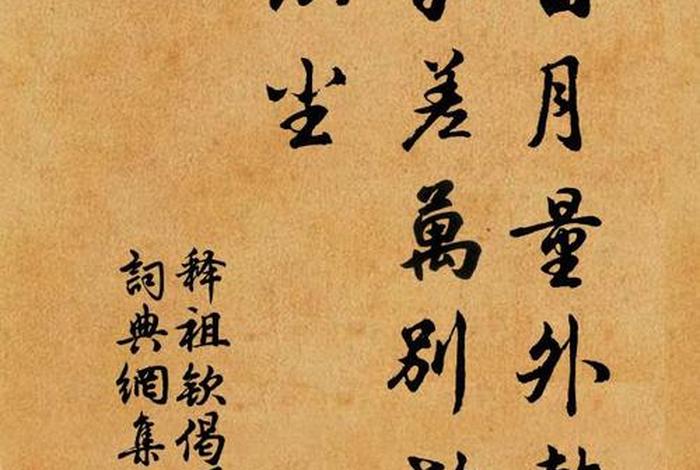 月量外
差萬別
尘
释祖钦偈
詞典網集